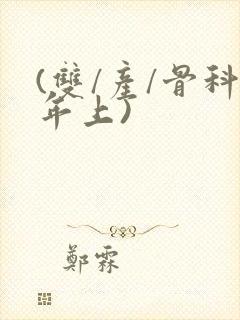 (雙/產/骨科
年上)
鄭霖